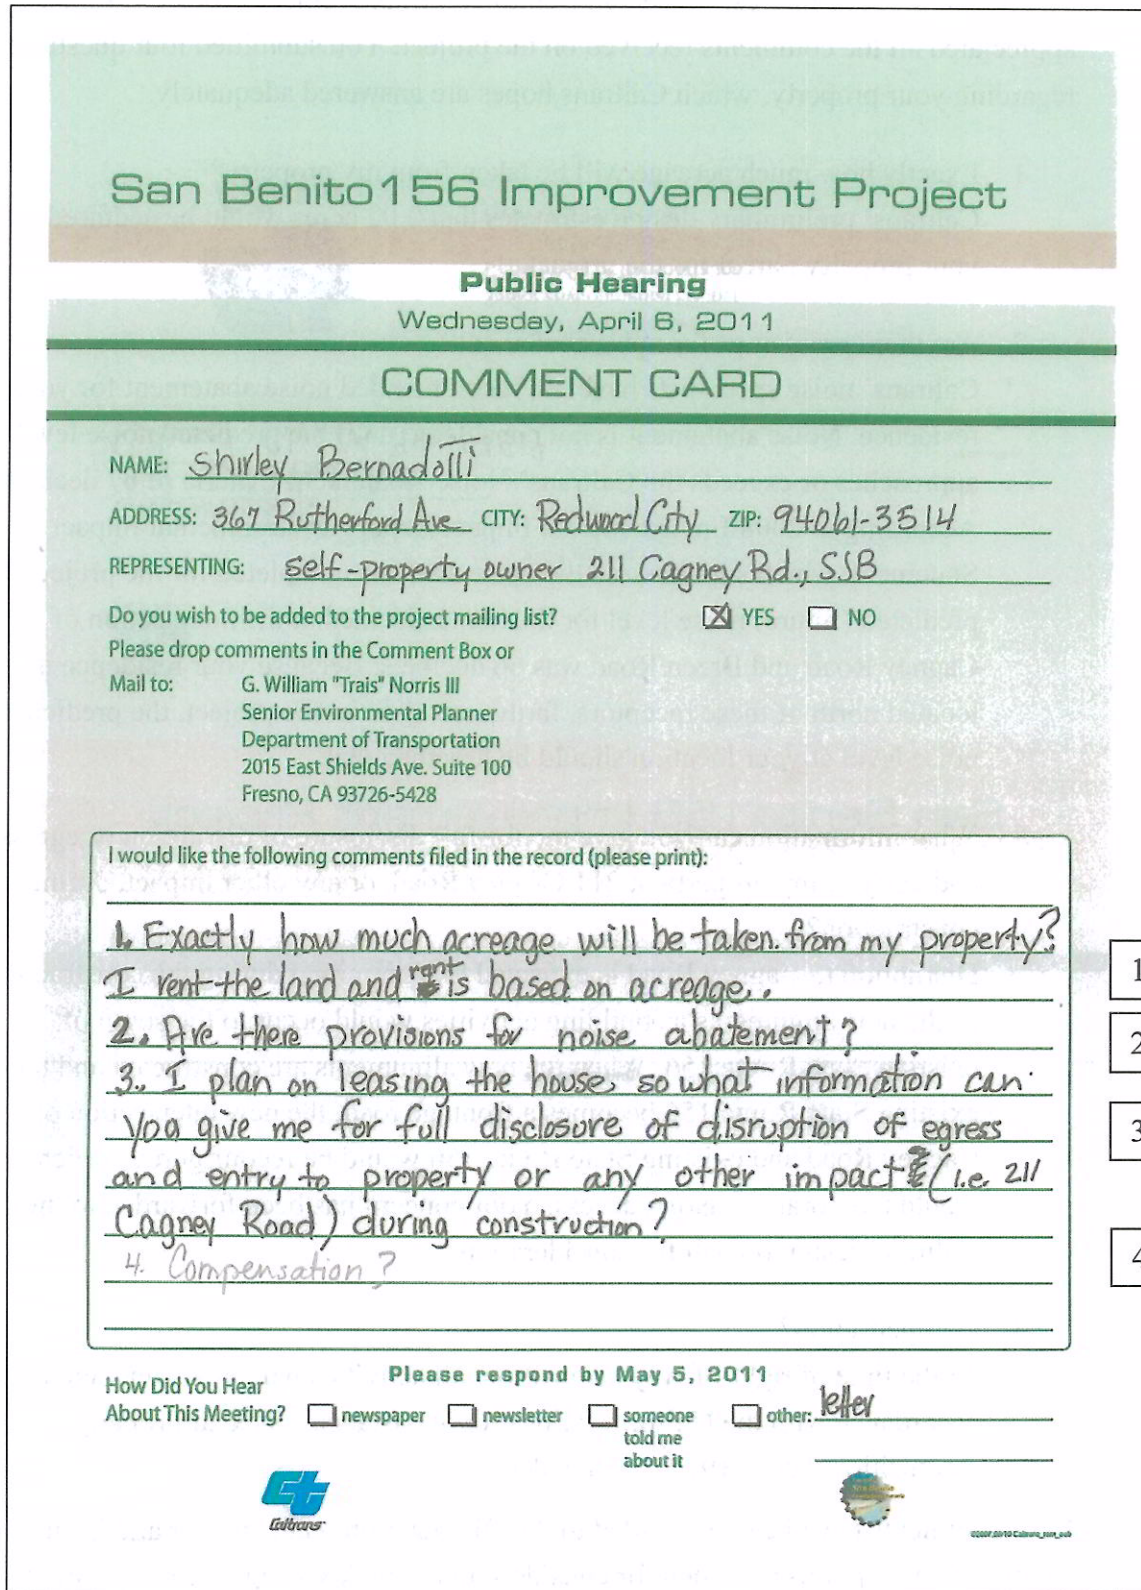 San Benito 156 Improvement Project
Public Hearing
Wednesday, April 6, 2011
COMMENT CARD
NAME: Shirley Bernadotti
ADDRESS: 367 Rutherford Ave CITY: Redwood City ZIP: 94061-3514
REPRESENTING: self-property owner 211 Cagney Rd., SJB
Do you wish to be added to the project mailing list? ☒ YES ☐ NO
Please drop comments in the Comment Box or
Mail to: G. William "Trais" Norris III
Senior Environmental Planner
Department of Transportation
2015 East Shields Ave. Suite 100
Fresno, CA 93726-5428
I would like the following comments filed in the record (please print):
1. Exactly how much acreage will be taken from my property?
I rent the land and rent is based on acreage..
2. Are there provisions for noise abatement?
3. I plan on leasing the house, so what information can
you give me for full disclosure of disruption of egress
and entry to property or any other impact (i.e. 211
Cagney Road) during construction?
4. Compensation?
1
2
3
4
Please respond by May 5, 2011
How Did You Hear
About This Meeting? ☐ newspaper ☐ newsletter ☐ someone told me about it ☐ other: letter
Caltrans